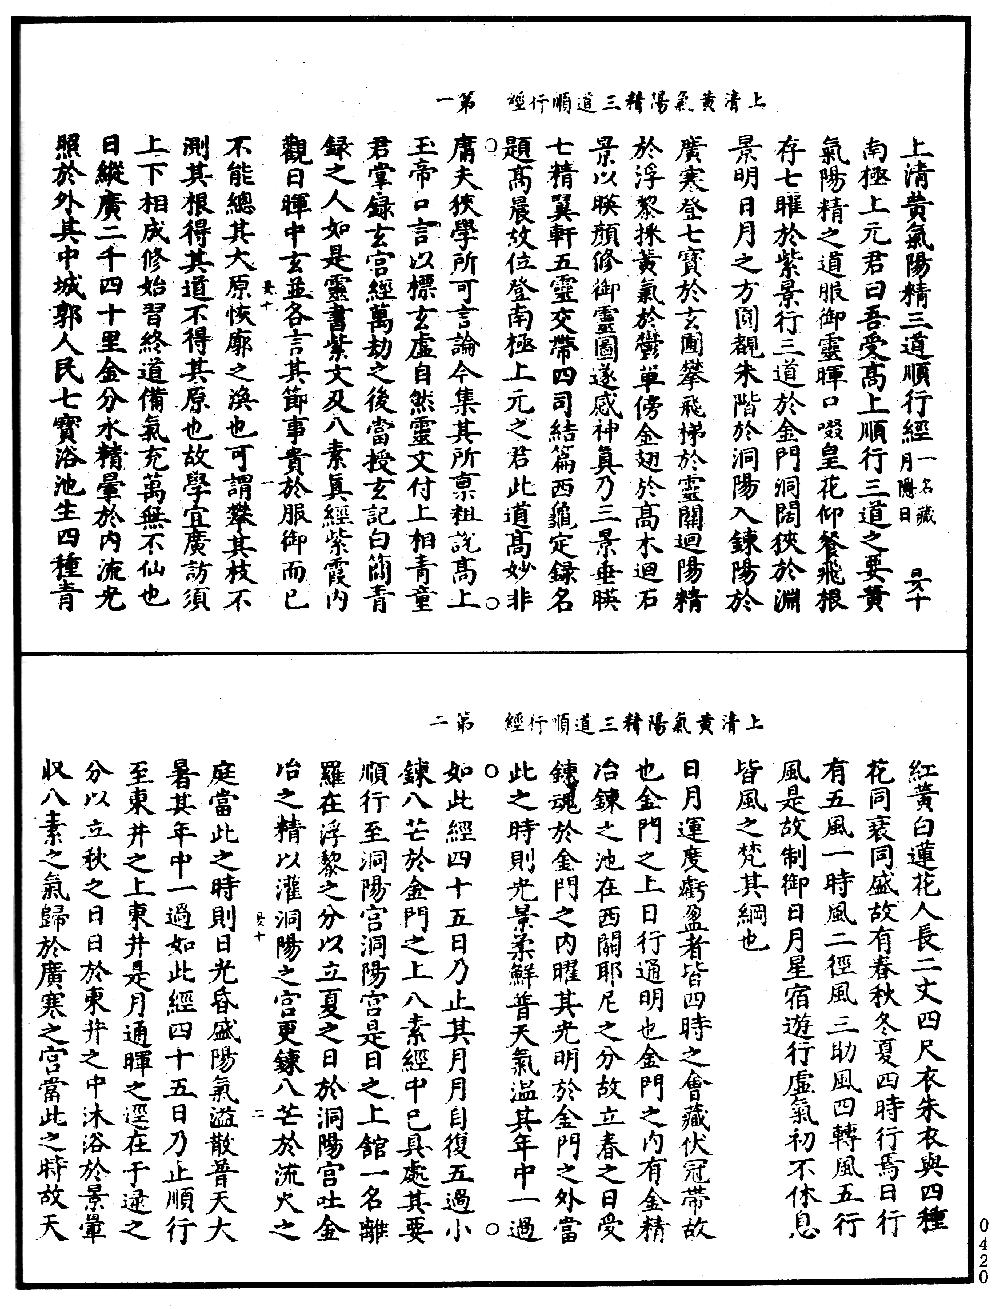 上清黃氣陽精三道順行經　第一
上清黃氣陽精三道順行經一名藏月隱日
南極上元君曰吾受高上順行三道之要黃
氣陽精之道服御靈暉口啜皇花仰餐飛根
存七曜於紫景行三道於金門洞闊狹於淵
景明日月之方圓覩朱階於洞陽入鍊陽於
廣寒登七寶於玄圃攀飛梯於靈關迴陽精
於浮黎採黃氣於鬱單傍金翅於高木迴石
景以暎顏修御靈圖遂感神真乃三景垂暎
七精翼軒五靈交帶四司結篇西龜定録名
題高晨故位登南極上元之君此道高妙非
庸夫狹學所可言論今集其所稟粗說高上
玉帝口言以標玄虛自然靈文付上相青童
君掌録玄宮經萬劫之後當授玄記白簡青
録之人如是靈書紫文及八素真經紫霞內
觀日暉中玄並各言其節事貴於服御而已
不能總其大原恢廓之渙也可謂攀其枝不
測其根得其道不得其原也故學宜廣訪須
上下相成修始習終道備氣充萬無不仙也
日縱廣二千四十里金分水精暈於內流光
照於外其中城郭人民七寶浴池生四種青
上清黃氣陽精三道順行經　第二
紅黃白蓮花人長二丈四尺衣朱衣與四種
花同衰同盛故有春秋冬夏四時行焉日行
有五風一時風二徑風三助風四轉風五行
風是故制御日月星宿遊行虛氣初不休息
皆風之梵其綱也
日月運度虧盈者皆四時之會藏伏冠帶故
也金門之上日行通明也金門之內有金精
冶鍊之池在西關耶尼之分故立春之日受
鍊魂於金門之內曜其光明於金門之外當
此之時則光景柔鮮普天氣溫其年中一過
如此經四十五日乃止其月月自復五過小
鍊八芒於金門之上八素經中已具處其要
順行至洞陽宮洞陽宮是日之上館一名離
羅在浮黎之分以立夏之日於洞陽宮吐金
冶之精以灌洞陽之宮更鍊八芒於流火之
庭當此之時則日光昏盛陽氣溢散普天大
暑其年中一過如此經四十五日乃止順行
至東井之上東井是月通暉之逕在于逮之
分以立秋之日日於東井之中沐浴於景暈
収八素之氣歸於廣寒之宮當此之時故天
0420